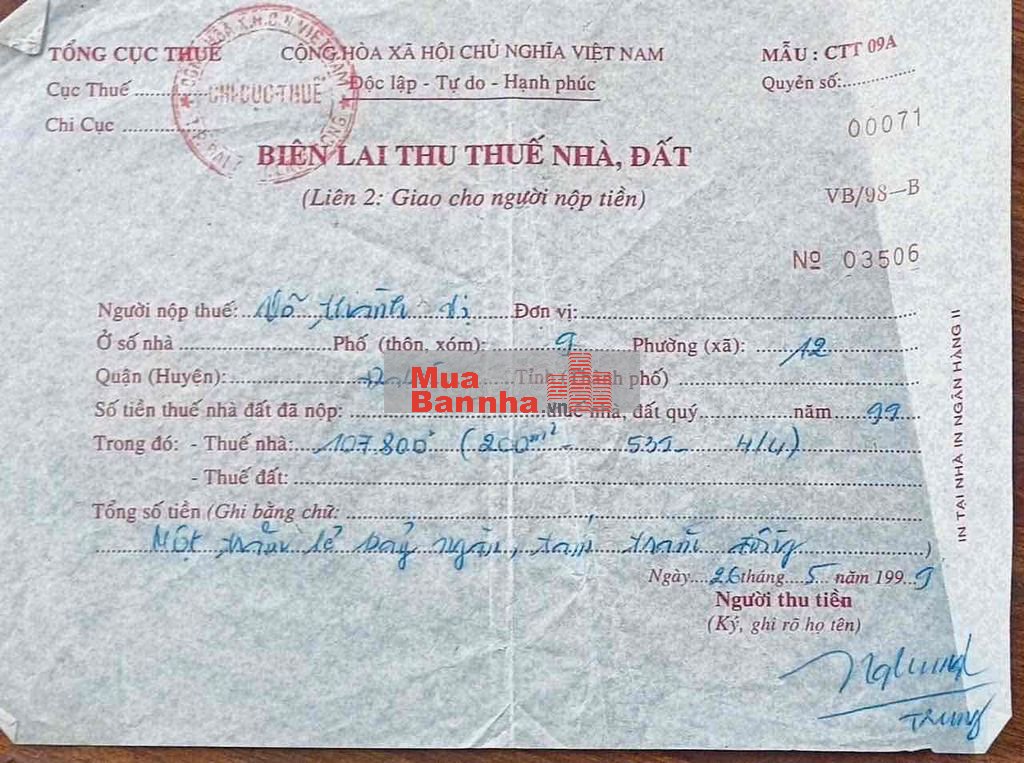 TỔNG CỤC THUẾ
CỘNG HÒA XÃ HỘI CHỦ NGHĨA VIỆT NAM
MẪU : CTT 09A
Cục Thuế ............
Độc lập - Tự do - Hạnh phúc
Quyển số:..............
Chi Cục ............
CHI CỤC THUẾ
00071
BIÊN LAI THU THUẾ NHÀ, ĐẤT
(Liên 2: Giao cho người nộp tiền)
VB/98-B
Nº 03506
Người nộp thuế: Võ Thành Đơn vị:
Ở số nhà Phố (thôn, xóm): 9 Phường (xã): 12
Quận (Huyện): Tỉnh (Thành phố)
Mua
Bannha.vn
Số tiền thuế nhà đất đã nộp: thuế nhà, đất quý năm 99
Trong đó: - Thuế nhà: 107.800đ (200m2 - 532 - 4/4)
- Thuế đất:
Tổng số tiền (Ghi bằng chữ:
Một trăm lẻ bảy ngàn, tám trăm đồng )
Ngày 26 tháng 5 năm 1999
Người thu tiền
(Ký, ghi rõ họ tên)
Trung
IN TẠI NHÀ IN NGÂN HÀNG II